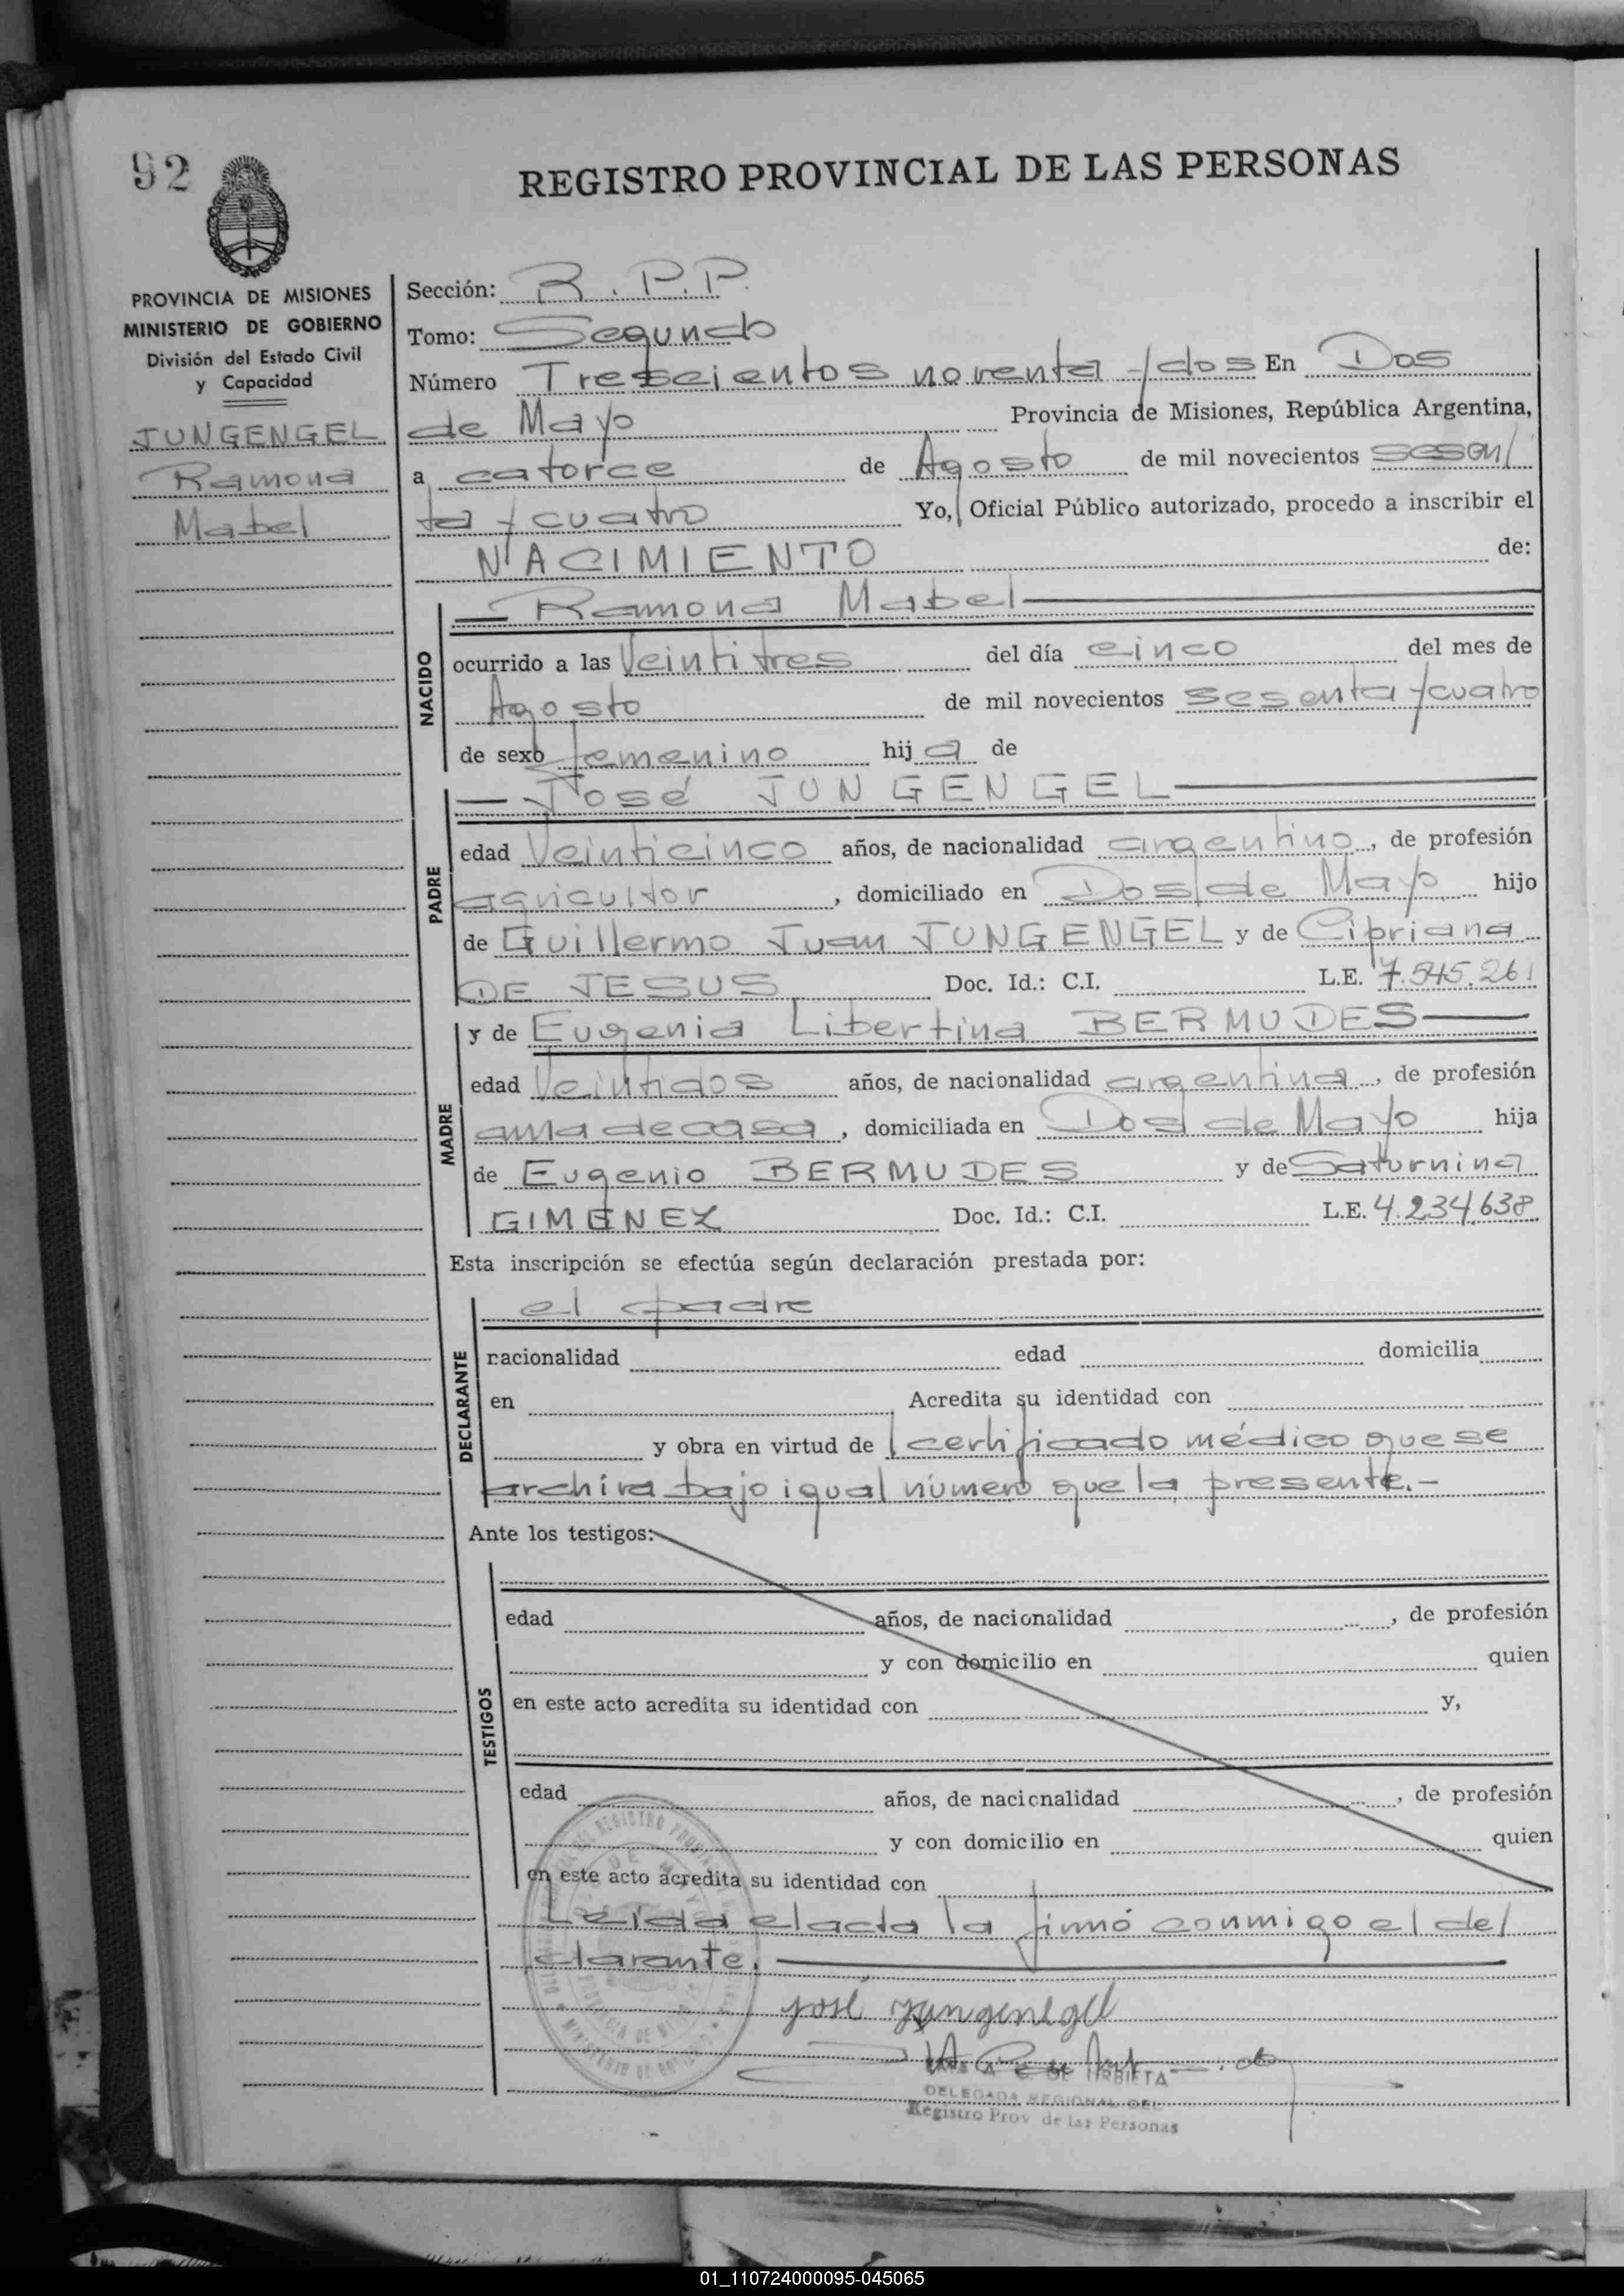 92
REGISTRO PROVINCIAL DE LAS PERSONAS
PROVINCIA DE MISIONES
MINISTERIO DE GOBIERNO
División del Estado Civil
y Capacidad
JUNGENGEL
Ramona
Mabel
Sección: R.P.P.
Tomo: Segundo
Número Trescientos noventa y dos En Dos
de Mayo Provincia de Misiones, República Argentina,
a catorce de Agosto de mil novecientos sesen/
ta y cuatro Yo, Oficial Público autorizado, procedo a inscribir el
NACIMIENTO de:
NACIDO
Ramona Mabel
ocurrido a las Veintitres del día cinco del mes de
Agosto de mil novecientos sesenta y cuatro
de sexo femenino hija de
PADRE
José JUNGENGEL
edad Veinticinco años, de nacionalidad argentino, de profesión
agricultor, domiciliado en Dos de Mayo hijo
de Guillermo Juan JUNGENGEL y de Cipriana
DE JESUS Doc. Id.: C.I. L.E. 7.545.261
MADRE
y de Eugenia Libertina BERMUDES
edad Veintidos años, de nacionalidad argentina, de profesión
ama de casa, domiciliada en Dos de Mayo hija
de Eugenio BERMUDES y de Saturnina
GIMENEZ Doc. Id.: C.I. L.E. 4.234.638
Esta inscripción se efectúa según declaración prestada por:
DECLARANTE
el padre
nacionalidad edad domicilia
en Acredita su identidad con
y obra en virtud de certificado médico que se
archiva bajo igual número que la presente.-
Ante los testigos:
TESTIGOS
edad años, de nacionalidad , de profesión
y con domicilio en quien
en este acto acredita su identidad con y,
edad años, de nacionalidad , de profesión
y con domicilio en quien
en este acto acredita su identidad con
Leída el acta la firmó conmigo el de/
clarante.
José Jungengel
DE URBIETA
DELEGADA REGIONAL DEL
Registro Prov de las Personas
01_110724000095-045065